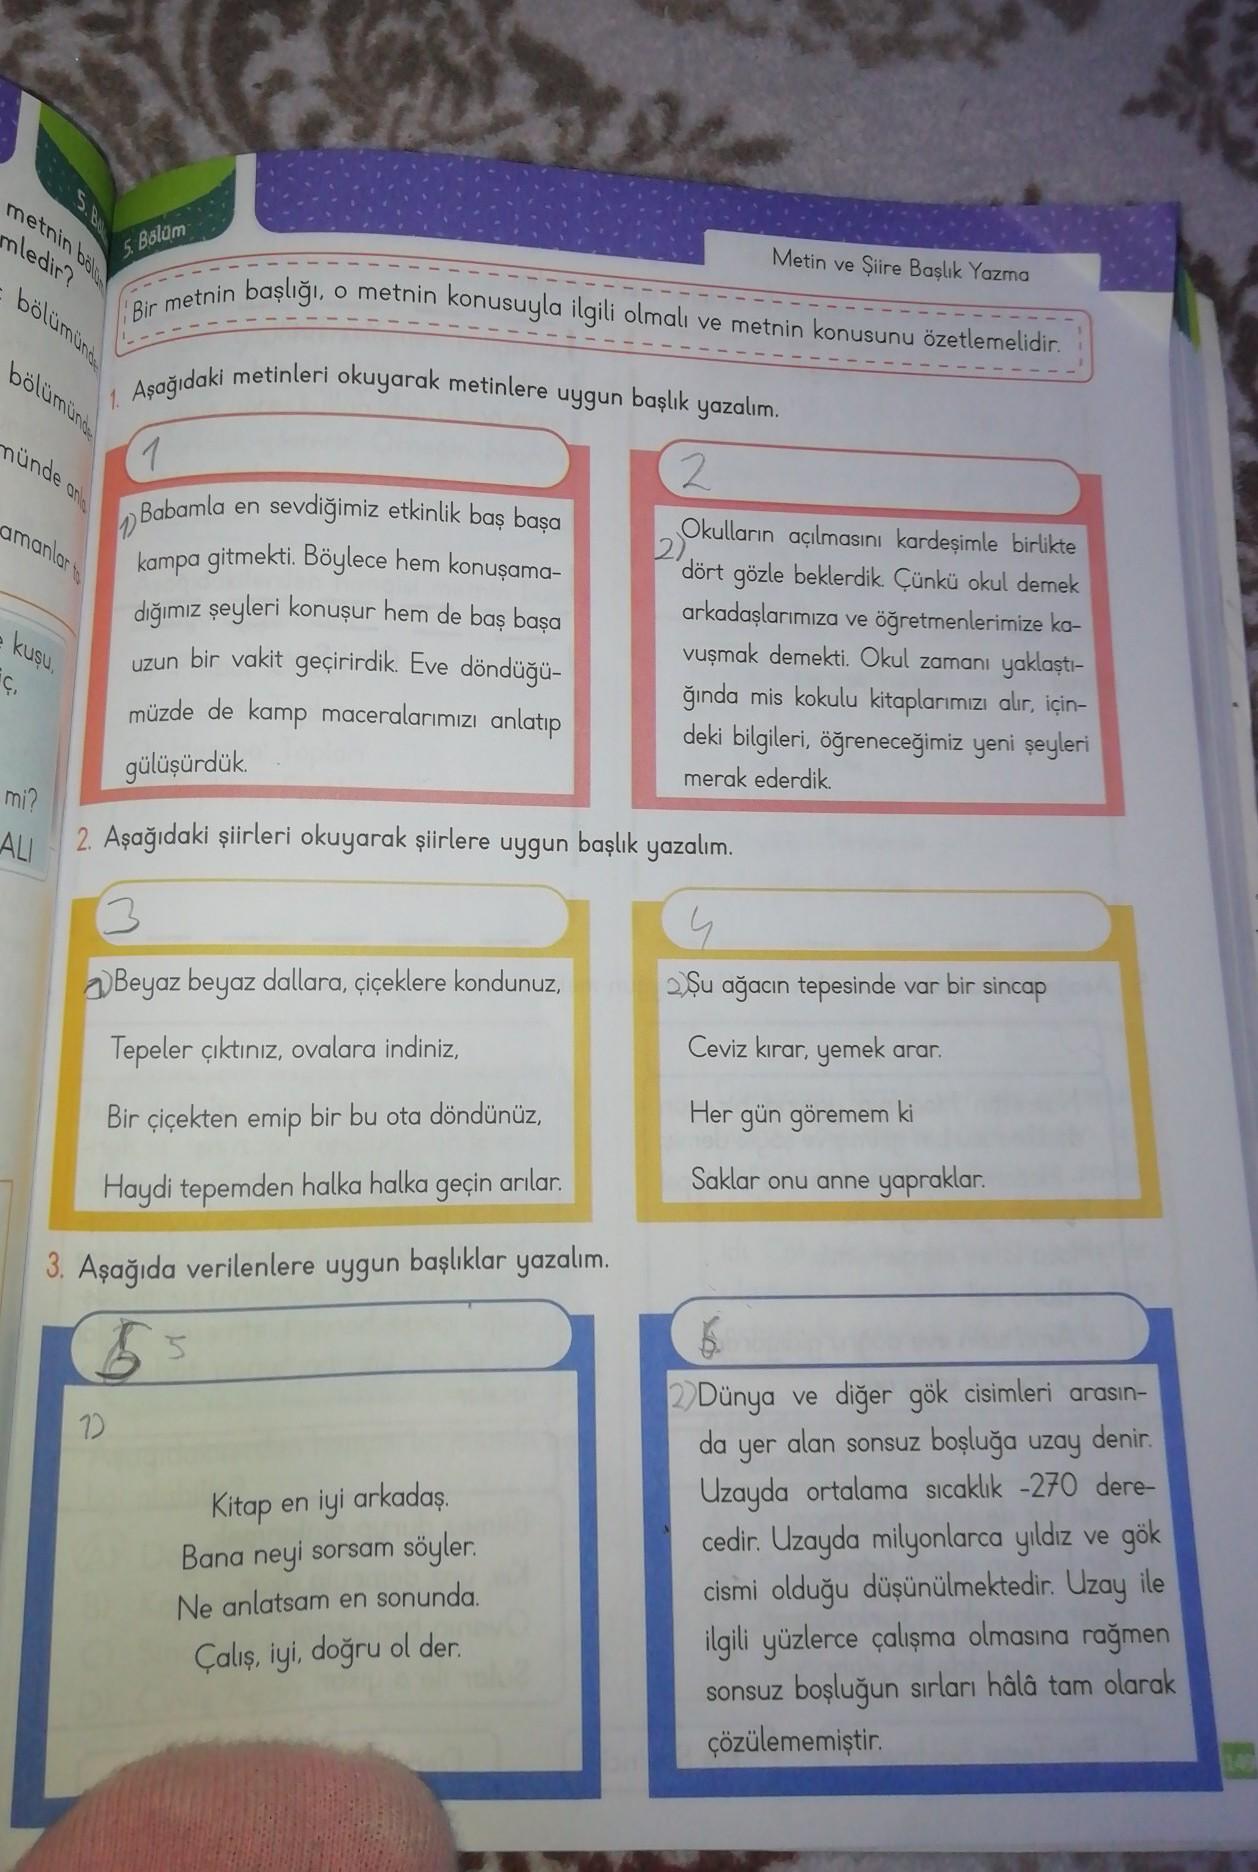 5. Bölüm
metnin bölüm
mledir?
bölümünde
bölümünde
münde anla
amanlar
kuşu,
iç,
mi?
ALI
5. Bölüm
Metin ve Şiire Başlık Yazma
Bir metnin başlığı, o metnin konusuyla ilgili olmalı ve metnin konusunu özetlemelidir.
1. Aşağıdaki metinleri okuyarak metinlere uygun başlık yazalım.
1
1) Babamla en sevdiğimiz etkinlik baş başa
kampa gitmekti. Böylece hem konuşama-
dığımız şeyleri konuşur hem de baş başa
uzun bir vakit geçirirdik. Eve döndüğü-
müzde de kamp maceralarımızı anlatıp
gülüşürdük.
2
2) Okulların açılmasını kardeşimle birlikte
dört gözle beklerdik. Çünkü okul demek
arkadaşlarımıza ve öğretmenlerimize ka-
vuşmak demekti. Okul zamanı yaklaştı-
ğında mis kokulu kitaplarımızı alır, için-
deki bilgileri, öğreneceğimiz yeni şeyleri
merak ederdik.
2. Aşağıdaki şiirleri okuyarak şiirlere uygun başlık yazalım.
3
1) Beyaz beyaz dallara, çiçeklere kondunuz,
Tepeler çıktınız, ovalara indiniz,
Bir çiçekten emip bir bu ota döndünüz,
Haydi tepemden halka halka geçin arılar.
4
2) Şu ağacın tepesinde var bir sincap
Ceviz kırar, yemek arar.
Her gün göremem ki
Saklar onu anne yapraklar.
3. Aşağıda verilenlere uygun başlıklar yazalım.
5 5
1)
Kitap en iyi arkadaş.
Bana neyi sorsam söyler.
Ne anlatsam en sonunda.
Çalış, iyi, doğru ol der.
6.
2) Dünya ve diğer gök cisimleri arasın-
da yer alan sonsuz boşluğa uzay denir.
Uzayda ortalama sıcaklık -270 dere-
cedir. Uzayda milyonlarca yıldız ve gök
cismi olduğu düşünülmektedir. Uzay ile
ilgili yüzlerce çalışma olmasına rağmen
sonsuz boşluğun sırları hâlâ tam olarak
çözülememiştir.